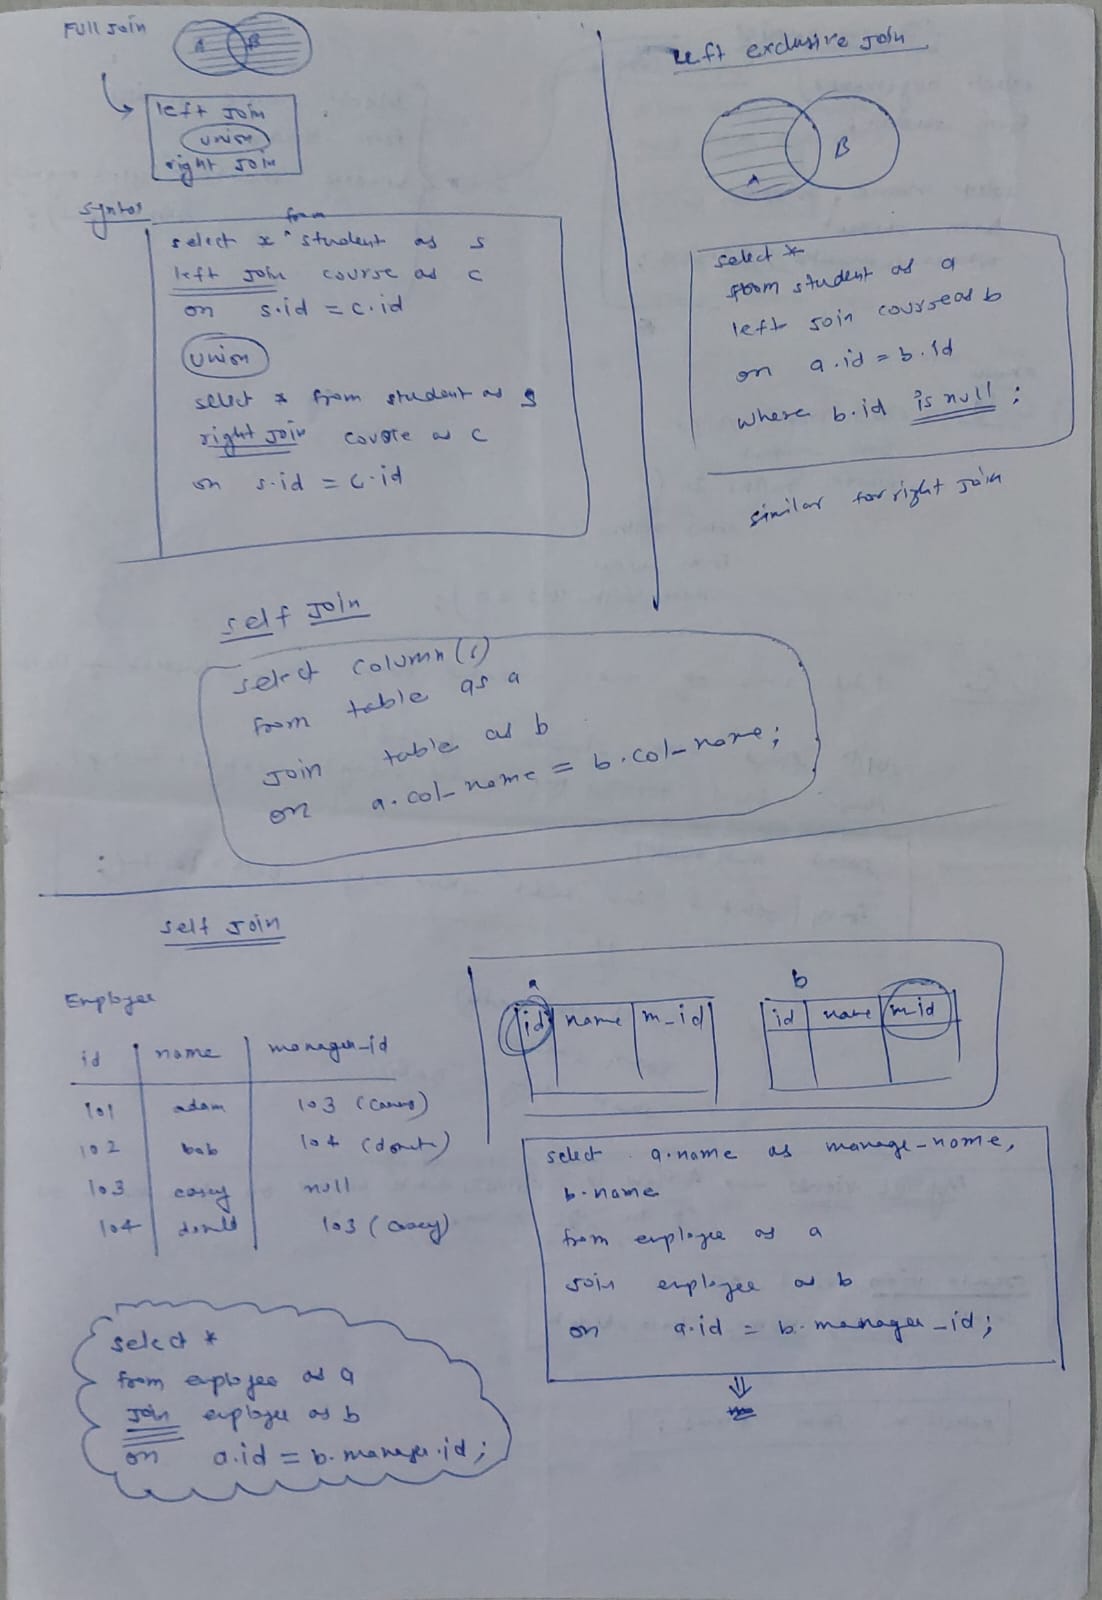 Full Join
A B
left Join
union
right Join
syntax
from
select * ^ student as s
left Join course as c
on s.id = c.id
Union
select * from student as s
right Join course as c
on s.id = c.id
left exclusive Join
A B
select *
from student as a
left Join course as b
on a.id = b.id
where b.id is null ;
similar for right Join
self Join
select column(s)
from table as a
Join table as b
on a.col_name = b.col_name;
self Join
Employee
id name manager_id
101 adam 103 (casey)
102 bob 104 (donald)
103 casey null
104 donald 103 (casey)
select *
from employee as a
Join employee as b
on a.id = b.manager.id;
a b
id name m_id id name m_id
select a.name as manage_name,
b.name
from employee as a
Join employee as b
on a.id = b.manager_id;